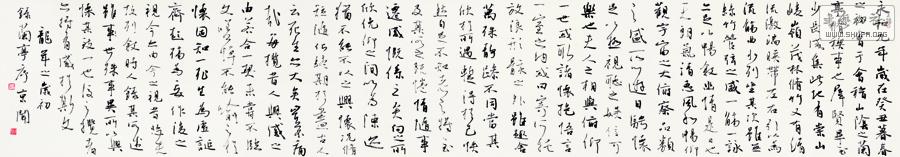 永和九年歲在癸丑暮春
之初會于會稽山陰之蘭
亭修禊事也群賢畢至
少長咸集此地有崇山
峻嶺茂林修竹又有清
流激湍映帶左右引以為
流觴曲水列坐其次雖無
絲竹管弦之盛一觴一詠
亦足以暢敘幽情是日也
天朗氣清惠風和暢仰
觀宇宙之大俯察品類
之盛所以遊目騁懷
足以極視聽之娛信可
樂也夫人之相與俯仰
一世或取諸懷抱悟言
一室之內或因寄所託
放浪形骸之外雖趣舍
萬殊靜躁不同當其
欣於所遇暫得於己快
然自足不知老之將至
及其所之既倦情隨事
遷感慨係之矣向之所
欣俛仰之間以為陳迹
猶不能不以之興懷況脩
短隨化終期於盡古人
云死生亦大矣豈不痛
哉每攬昔人興感之
由若合一契未嘗不臨
文嗟悼不能喻之於
懷固知一死生為虛誕
齊彭殤為妄作後之
視今亦由今之視昔悲夫
故列敘時人錄其所述
雖世殊事異所以興
懷其致一也後之攬者
亦將有感於斯文
龍年之歲初
錄蘭亭序